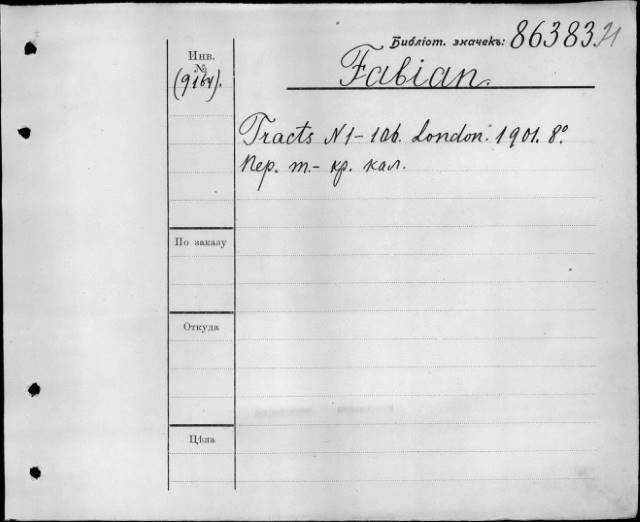 Библіот. значекъ: 86383.
Инв.
№
Fabian.
Tracts N1-106. London. 1901. 8°
Пер. т.- кр. кал.
По заказу
Откуда
Цѣна